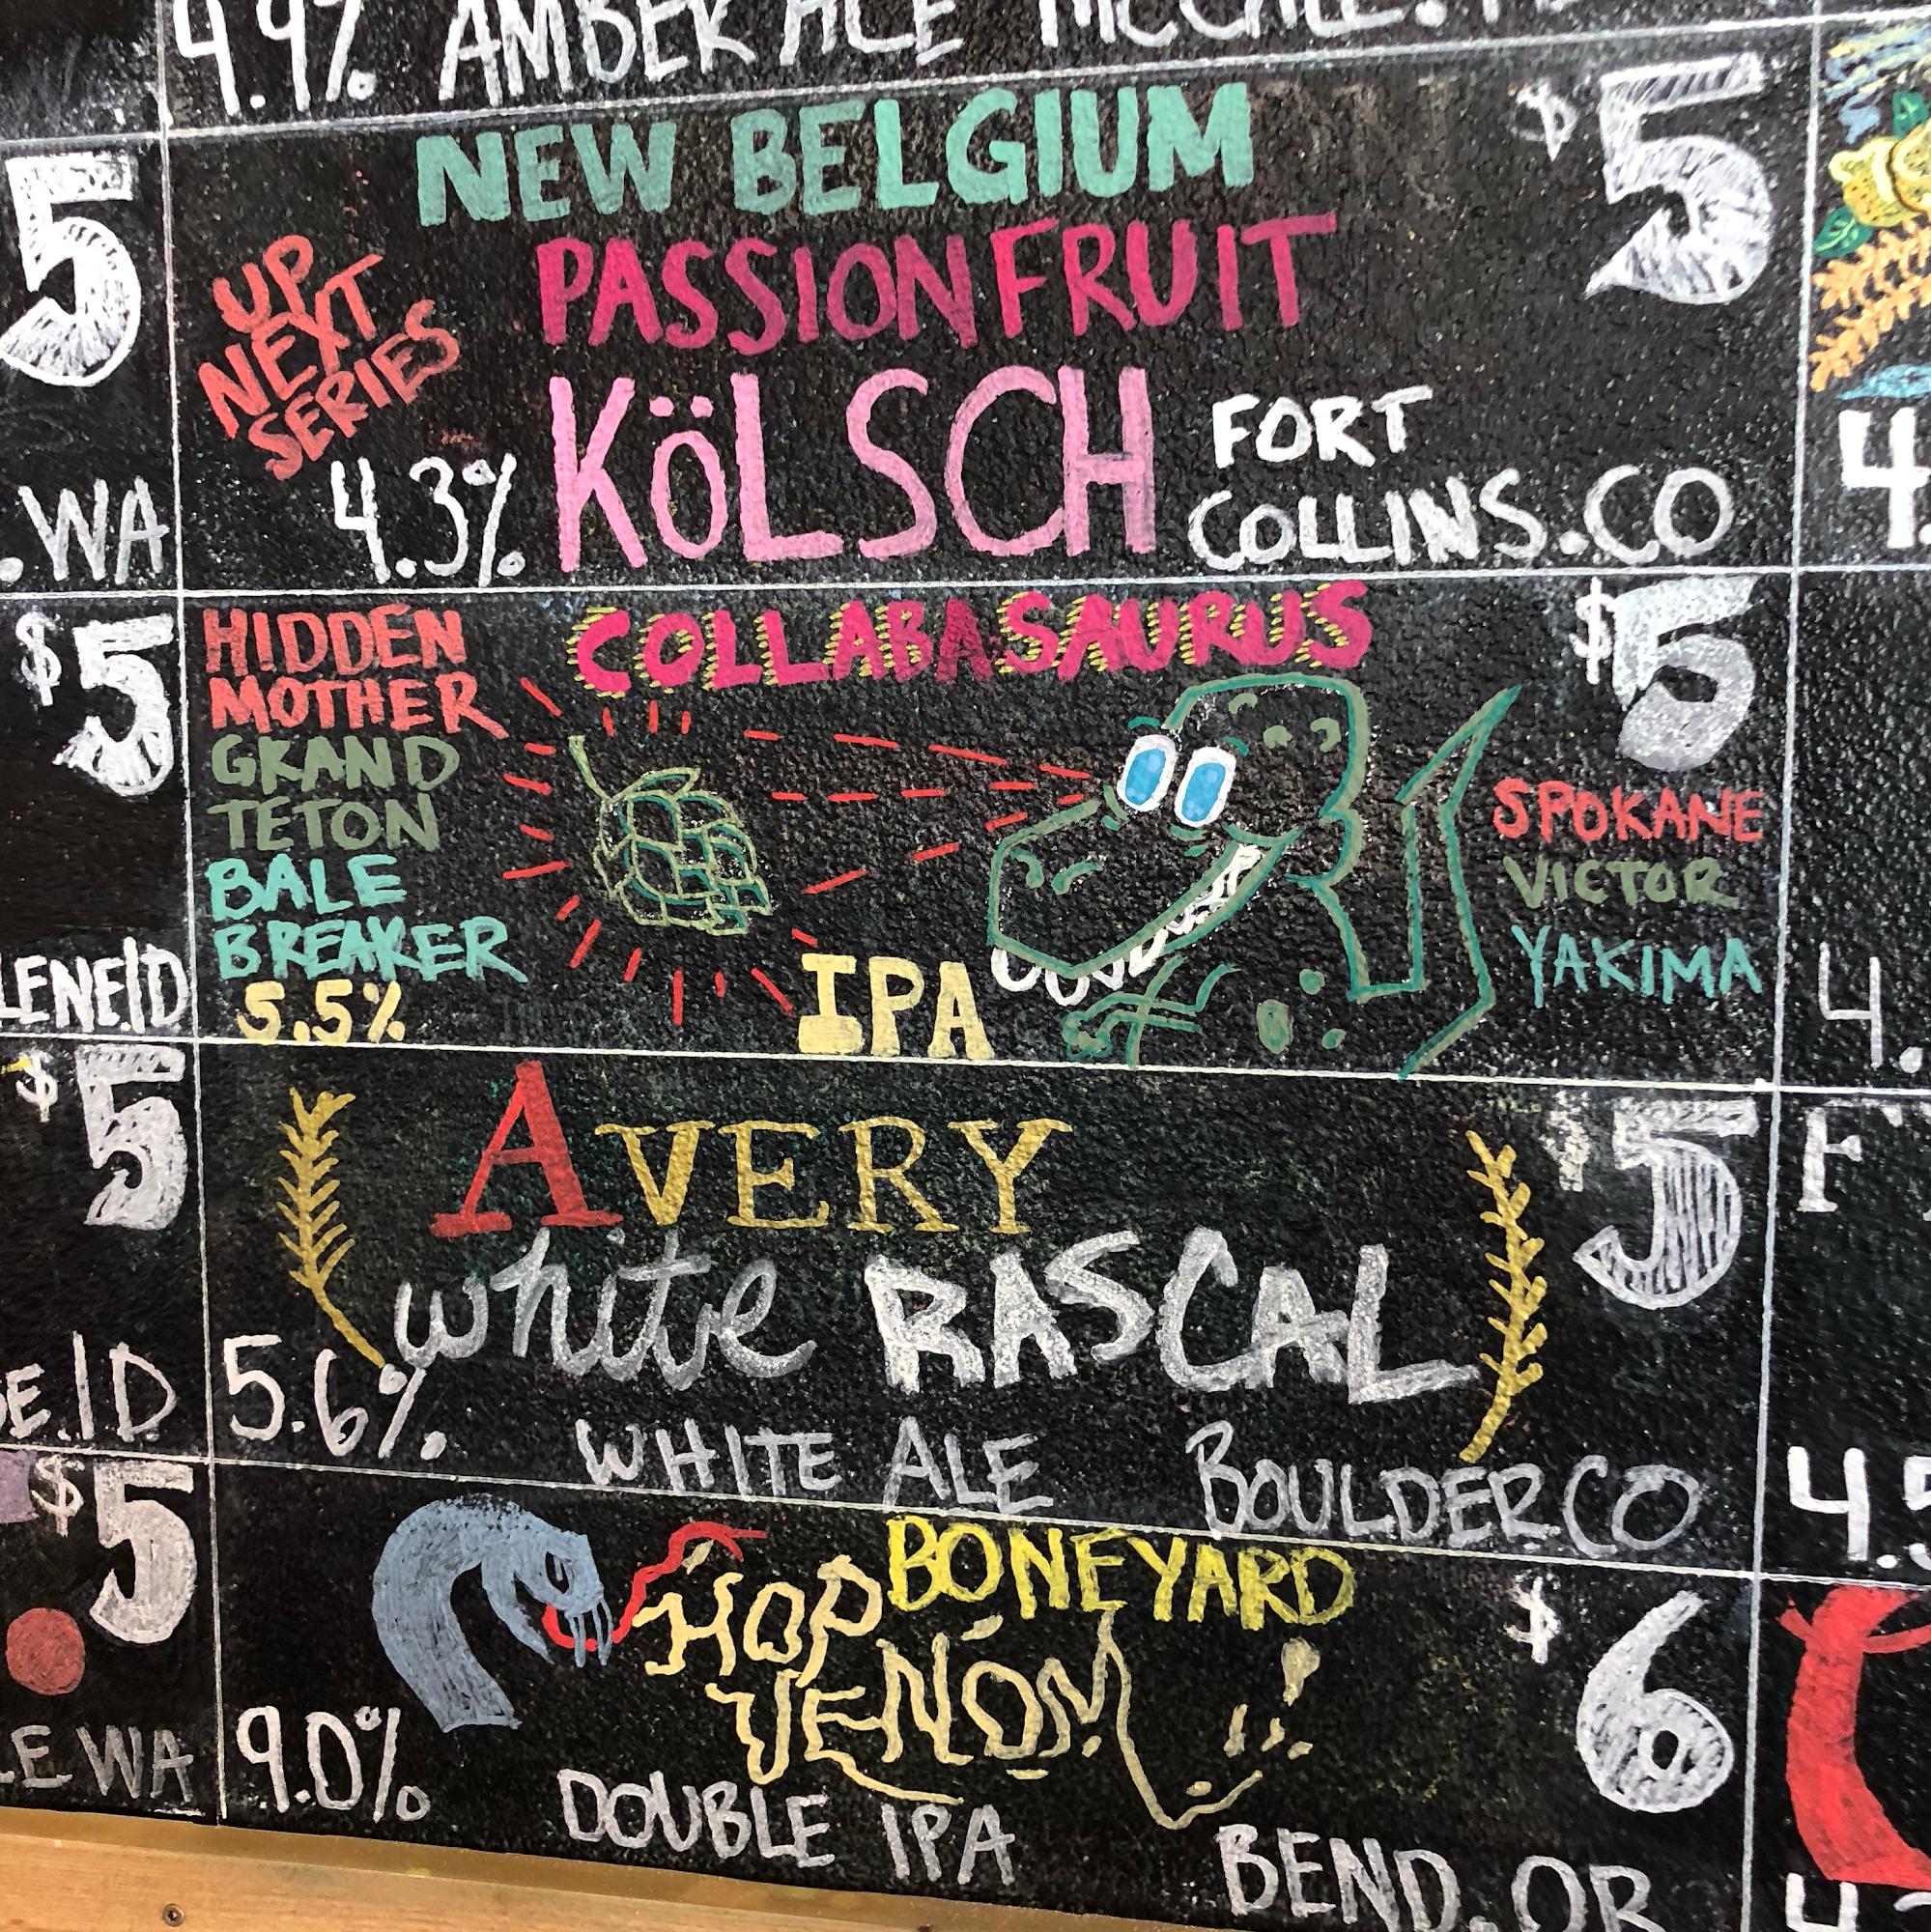 4.9% AMBER ALE MCCALL.
NEW BELGIUM
$5
PASSIONFRUIT
UP
NEXT
SERIES
KöLSCH
4.3%
FORT
COLLINS.CO
COLLABASAURUS
$5
HIDDEN
MOTHER
GRAND
TETON
BALE
BREAKER
5.5%
IPA
SPOKANE
VICTOR
YAKIMA
AVERY
$5
white RASCAL
5.6%
WHITE ALE
BOULDER.CO
BONEYARD
HOP
VENOM
$6
9.0%
DOUBLE IPA
BEND.OR
5
.WA
$5
LENE.ID
$5
E.ID
$5
LE WA
4.
4.
F
4.5